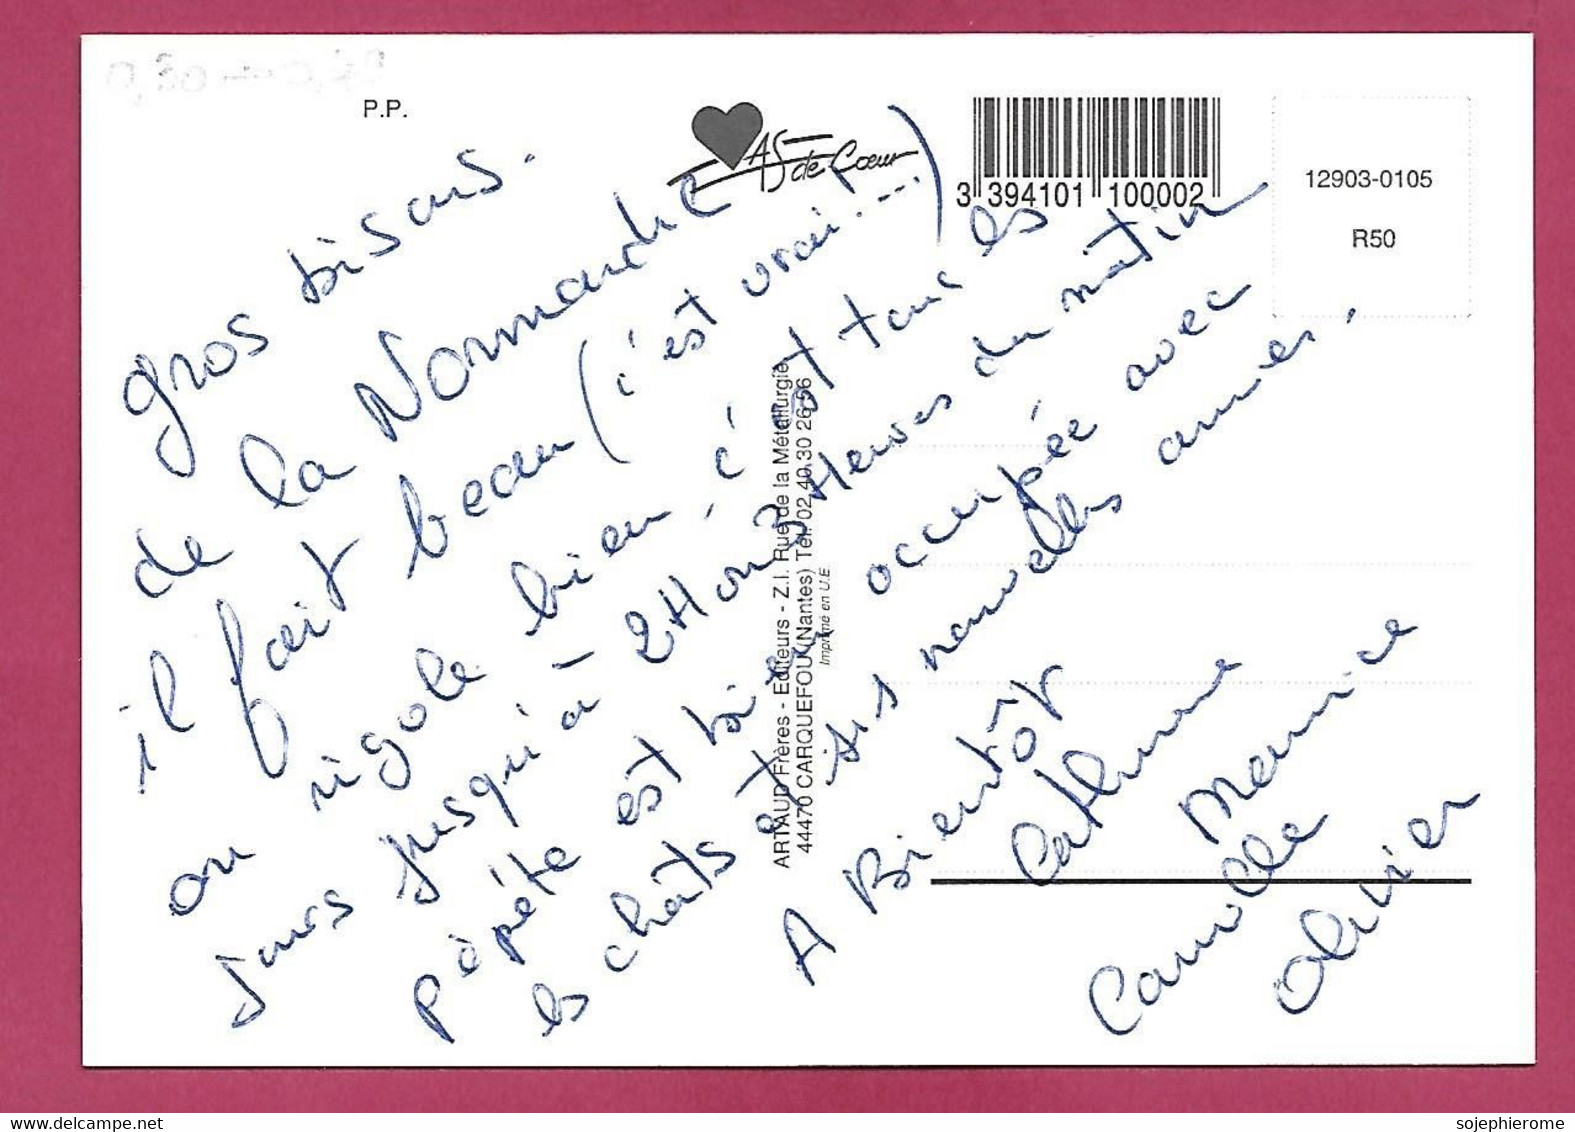 P.P.
AS de Cœur
3 394101 100002
12903-0105
R50
gros bisous.
de la Normandie
il fait beau (c'est vrai!...)
on rigole bien, c'est tous les
jours jusqu'à - 2H ou 3 Heures du matin
pépéte est bien occupée avec
les chats et ses nouvelles amies.
A Bientôt
Catherine
Maurice
Camille
Olivier
ARTAUD Frères - Editeurs - Z.I. Rue de la Métallurgie
44470 CARQUEFOU (Nantes) Tél. 02 40 30 26 56
Imprimé en U.E.
sojephierome